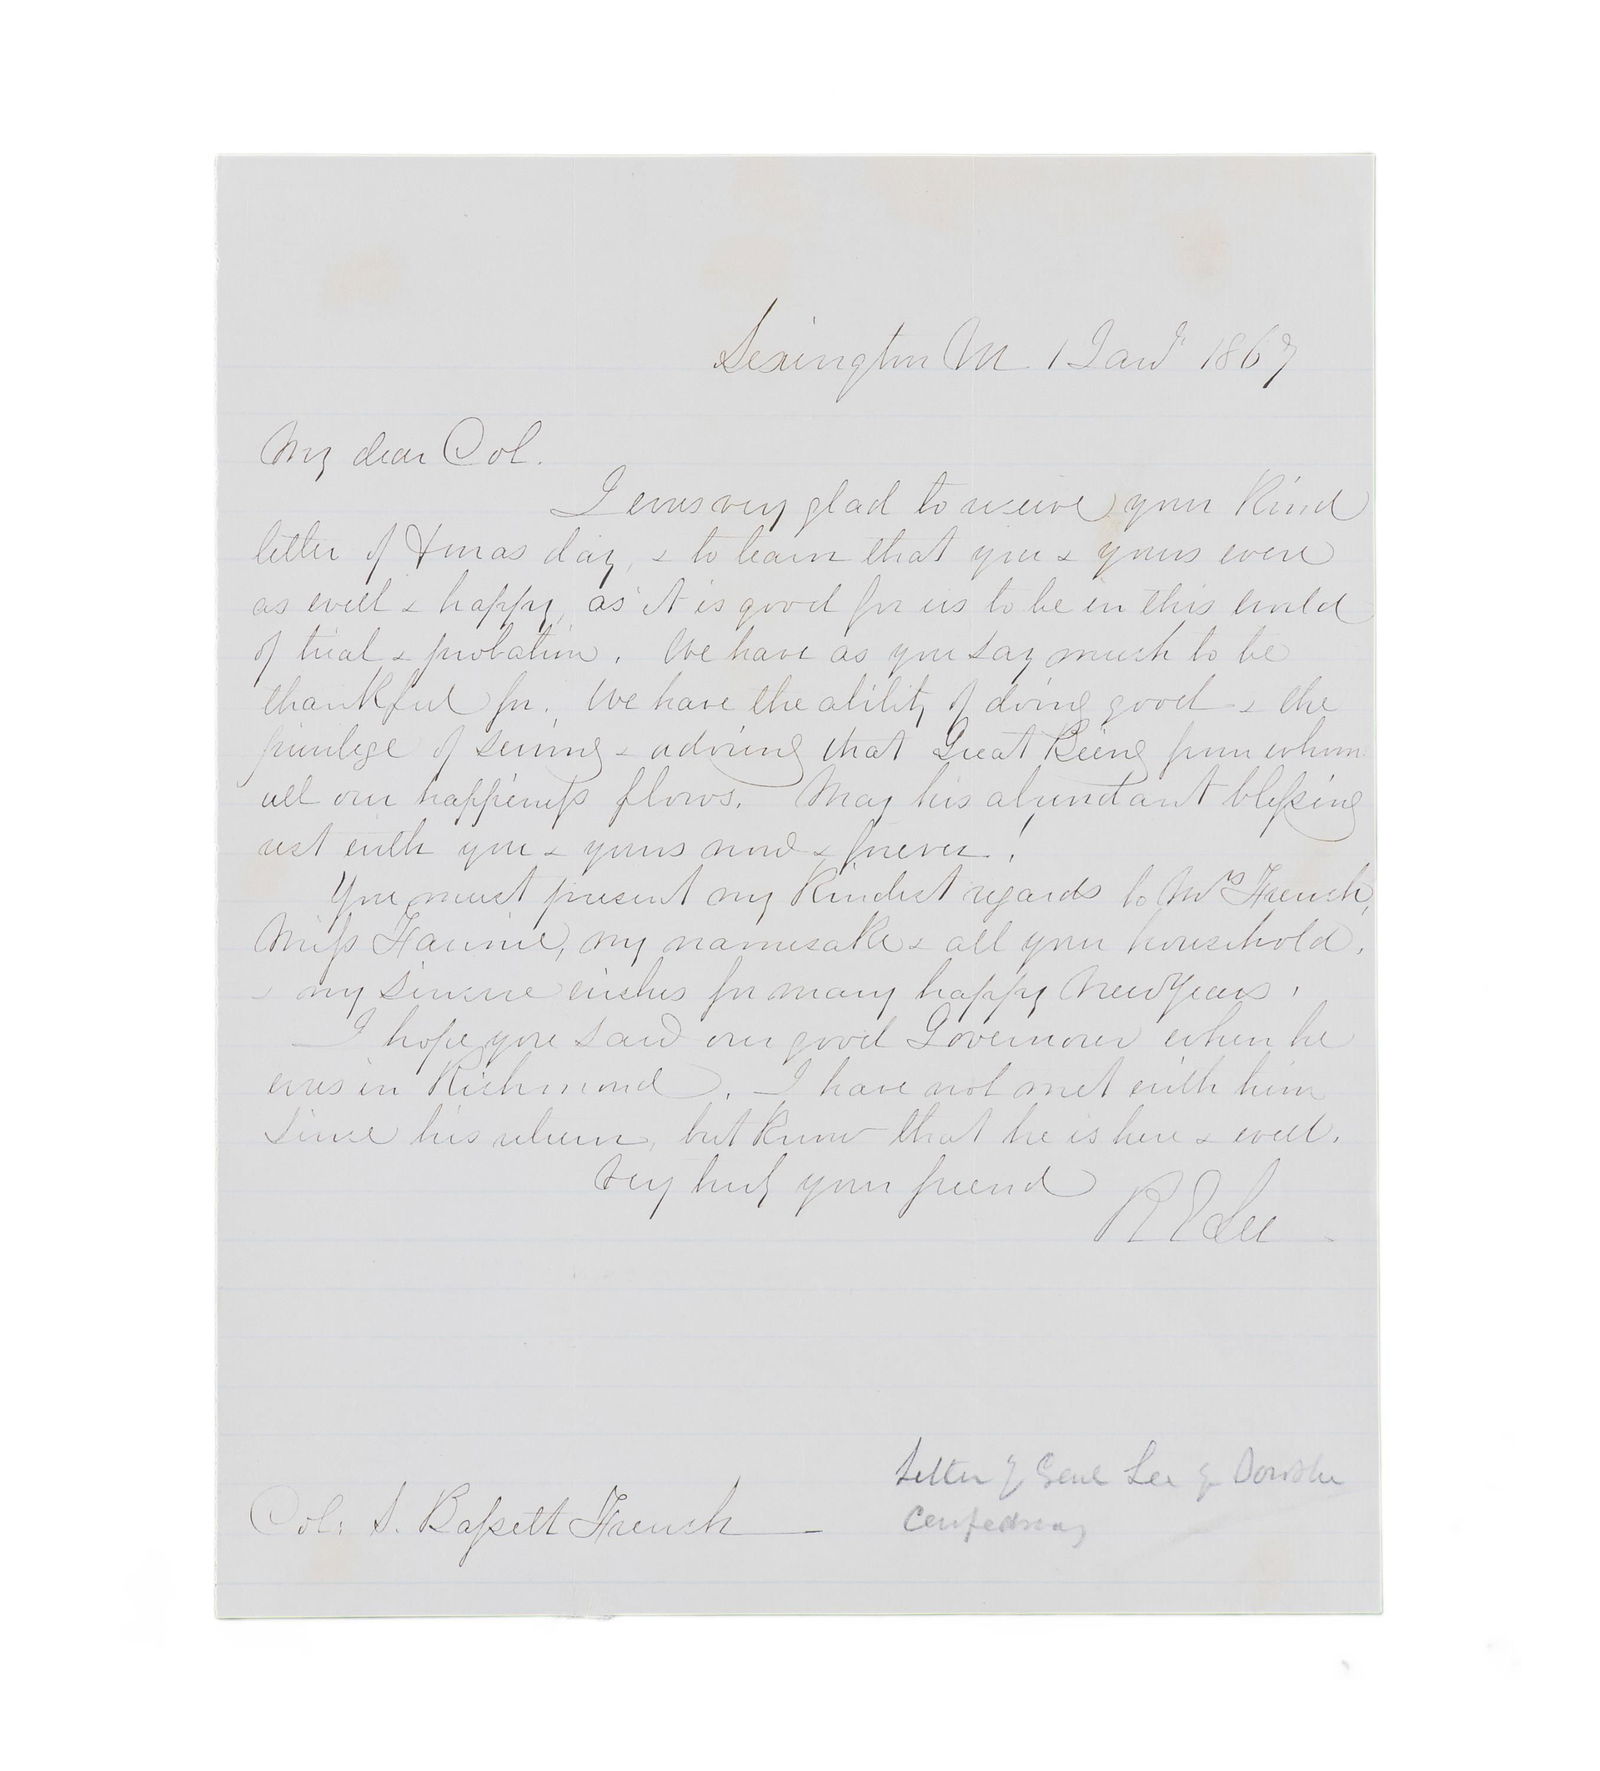 Lexington Va 1 Jany 1867
My dear Col.
I was very glad to receive your kind
letter of Xmas day, & to learn that you & yours were
as well & happy, as it is good for us to be in this world
of trial & probation. We have as you say much to be
thankful for. We have the ability of doing good & the
privilege of serving & adoring that Great Being from whom
all our happiness flows. May his abundant blessing
rest with you & yours now & forever!
You must present my kindest regards to Mrs French,
Miss Fannie, my namesake & all your household,
& my sincere wishes for many happy New Years.
I hope you saw our good Governour when he
was in Richmond. I have not met with him
since his return, but know that he is here & well.
Very truly your friend
R E Lee
Letter of Genl Lee of
Confederacy
Col: S. Bassett French